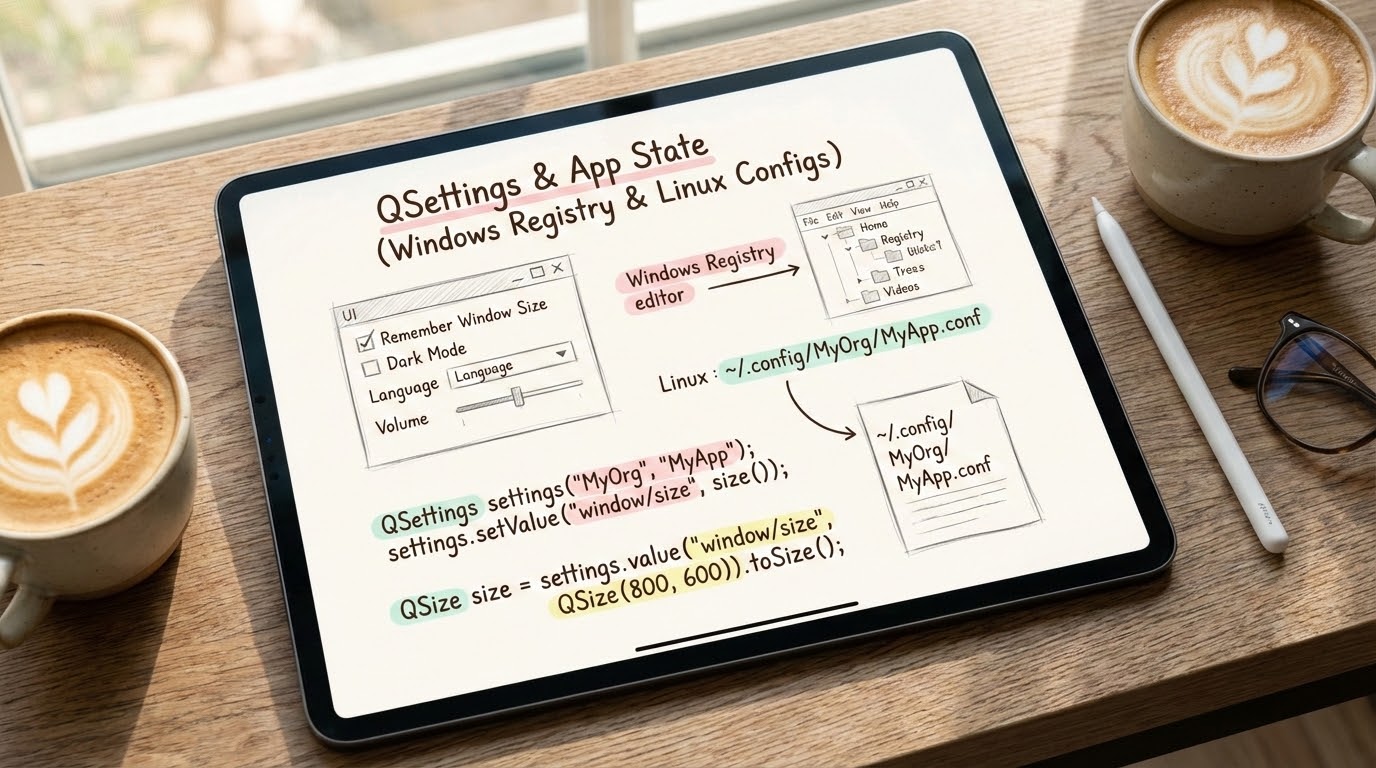 QSettings & App State
(Windows Registry & Linux Configs)
UI
Remember Window Size
Dark Mode
Language Language
Volume
Windows Registry
editor
File Edit View Help
Home
Registry
Trees
Videos
Linux : ~/.config/MyOrg/MyApp.conf
~/.config/
MyOrg/
MyApp.conf
QSettings settings("MyOrg", "MyApp");
settings.setValue("window/size", size());
QSize size = settings.value("window/size",
QSize(800, 600)).toSize();